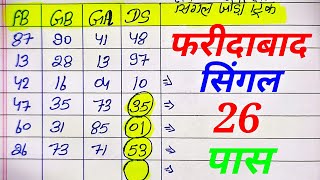 सिंगल जोड़ी ट्रिक
FB GB GA DS
87 90 41 48
13 28 13 97
42 16 04 10 ⇒
47 35 73 35 ⇒
60 31 85 01 ⇒
26 73 71 53 ⇒
⇒
फरीदाबाद
सिंगल
26
पास